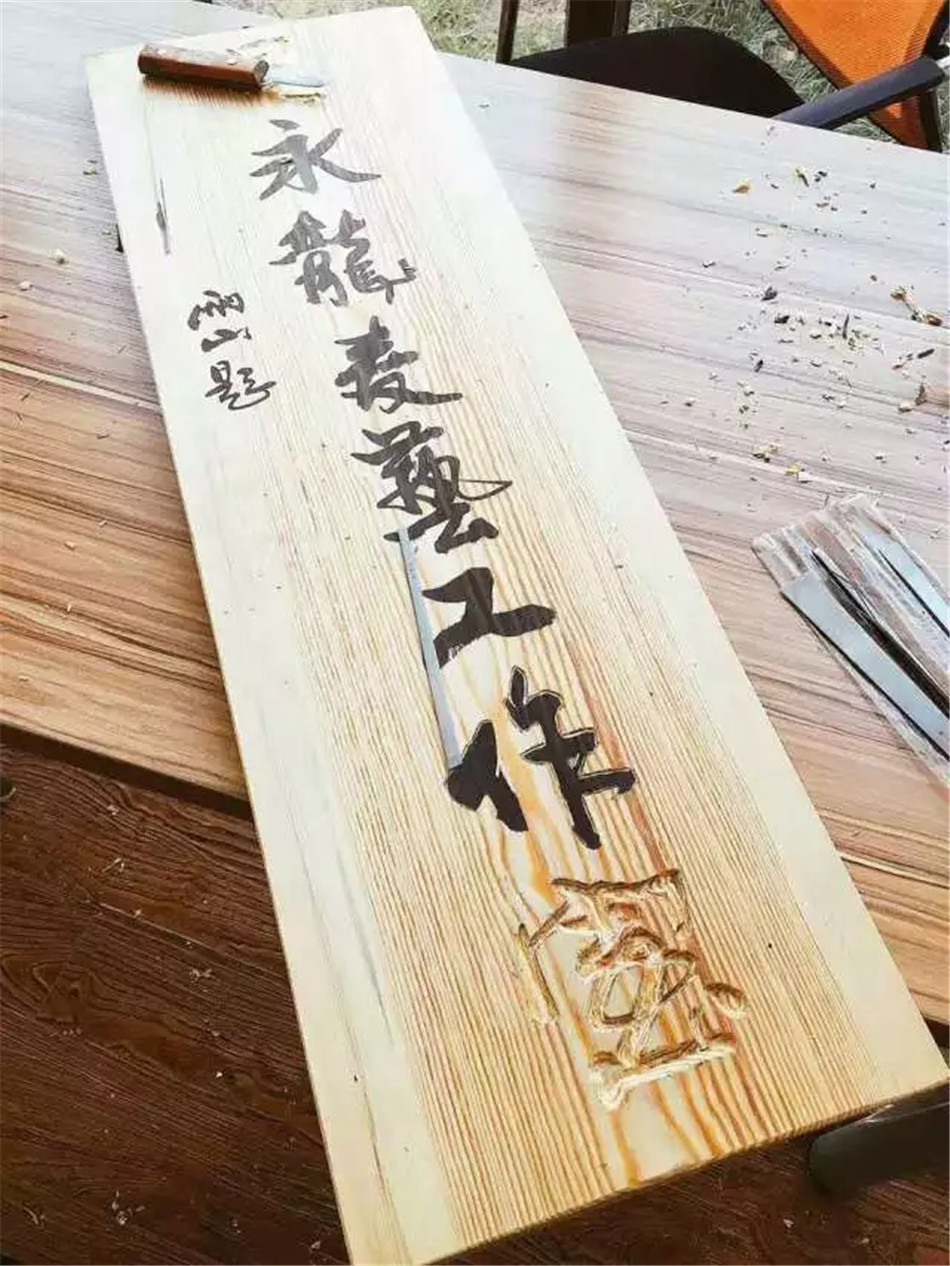 永龍麦藝工作室
雨山题